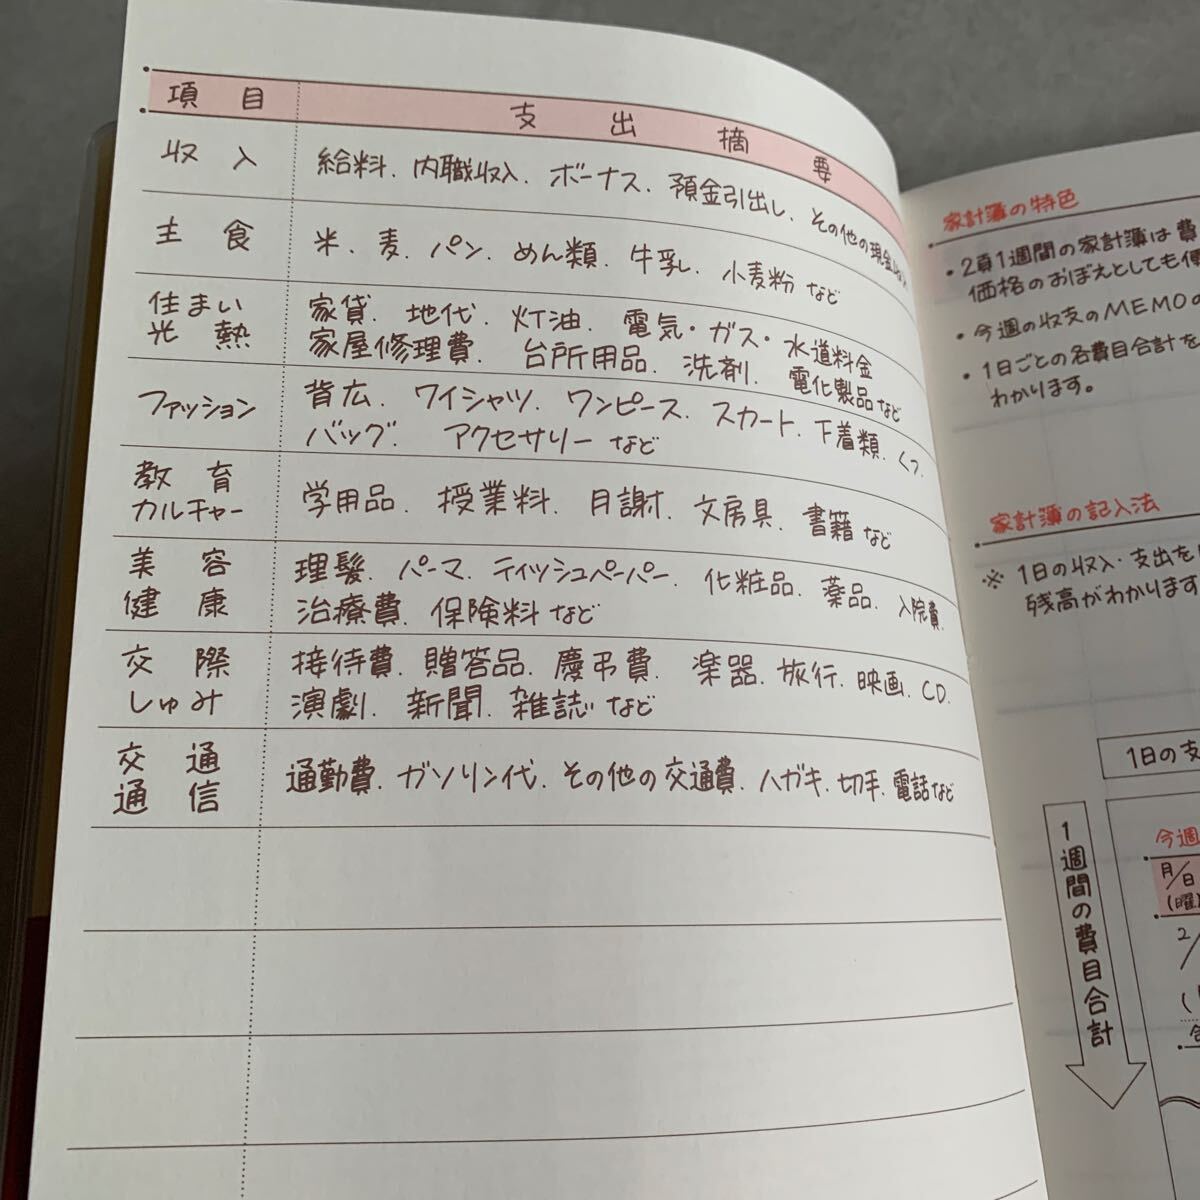 項目 支出摘要
収入 給料、内職収入、ボーナス、預金引出し、その他の現金収入
主食 米、麦、パン、めん類、牛乳、小麦粉など
住まい 家賃、地代、灯油、電気・ガス・水道料金
光熱 家屋修理費、台所用品、洗剤、電化製品など
ファッション 背広、ワイシャツ、ワンピース、スカート、下着類、くつ、
バッグ、アクセサリーなど
教育 学用品、授業料、月謝、文房具、書籍など
カルチャー
美容 理髪、パーマ、ティッシュペーパー、化粧品、薬品、入院費、
健康 治療費、保険料など
交際 接待費、贈答品、慶弔費、楽器、旅行、映画、CD、
しゅみ 演劇、新聞、雑誌など
交通 通勤費、ガソリン代、その他の交通費、ハガキ、切手、電話など
通信
家計簿の特色
・2頁1週間の家計簿は費
価格のおぼえとしても便
・今週の収支のMEMOの
・1日ごとの各費目合計を
わかります。
家計簿の記入法
※1日の収入・支出を
残高がわかります
1日の支
1週間の費目合計
今週
月/日
(曜)
2/